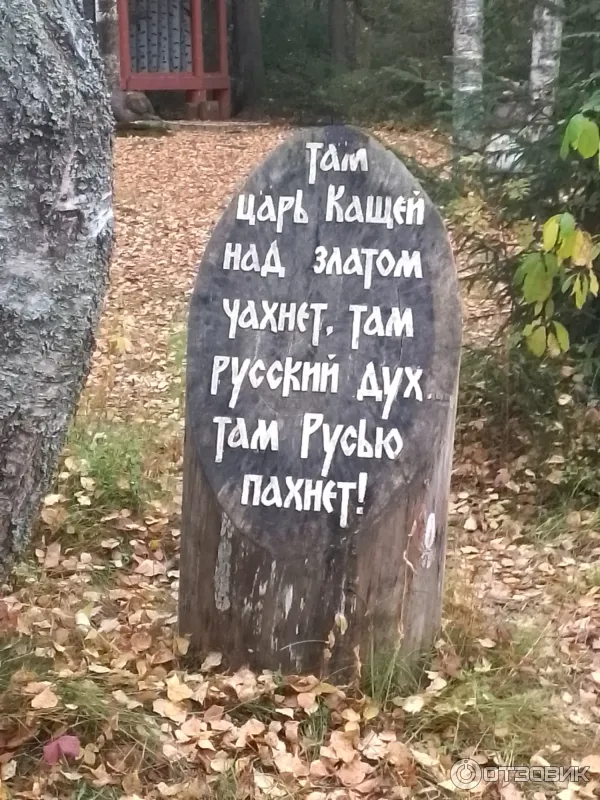 там
царь Кащей
над златом
чахнет, там
русский дух...
там Русью
пахнет!
ОТЗОВИК